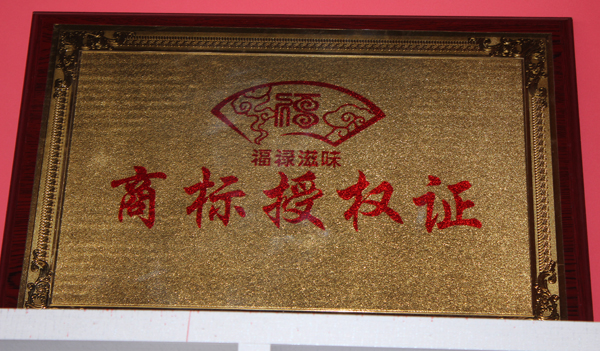 福
福禄滋味
商标授权证